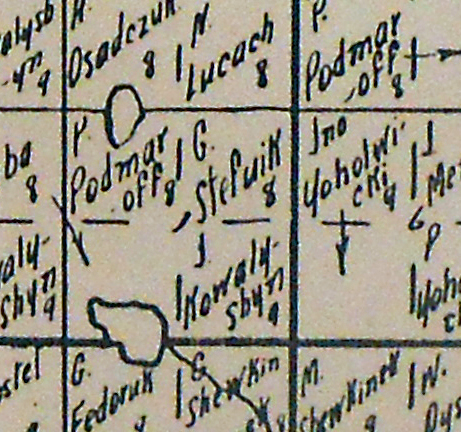 alysh
yn
9
H.
Osadczuk
8
N.
Lucach
8
P.
Podmar
off
8
ba
8
P
Podmar
off
8
G.
Stefuik
8
Jno
Yoholwi-
cki
9
J
Me
aly-
shyn
9
J
Kowaly-
shyn
9
P
Yoh
stel
G.
Fedoruk
G
Shewkin
M.
Shewkinek
W.